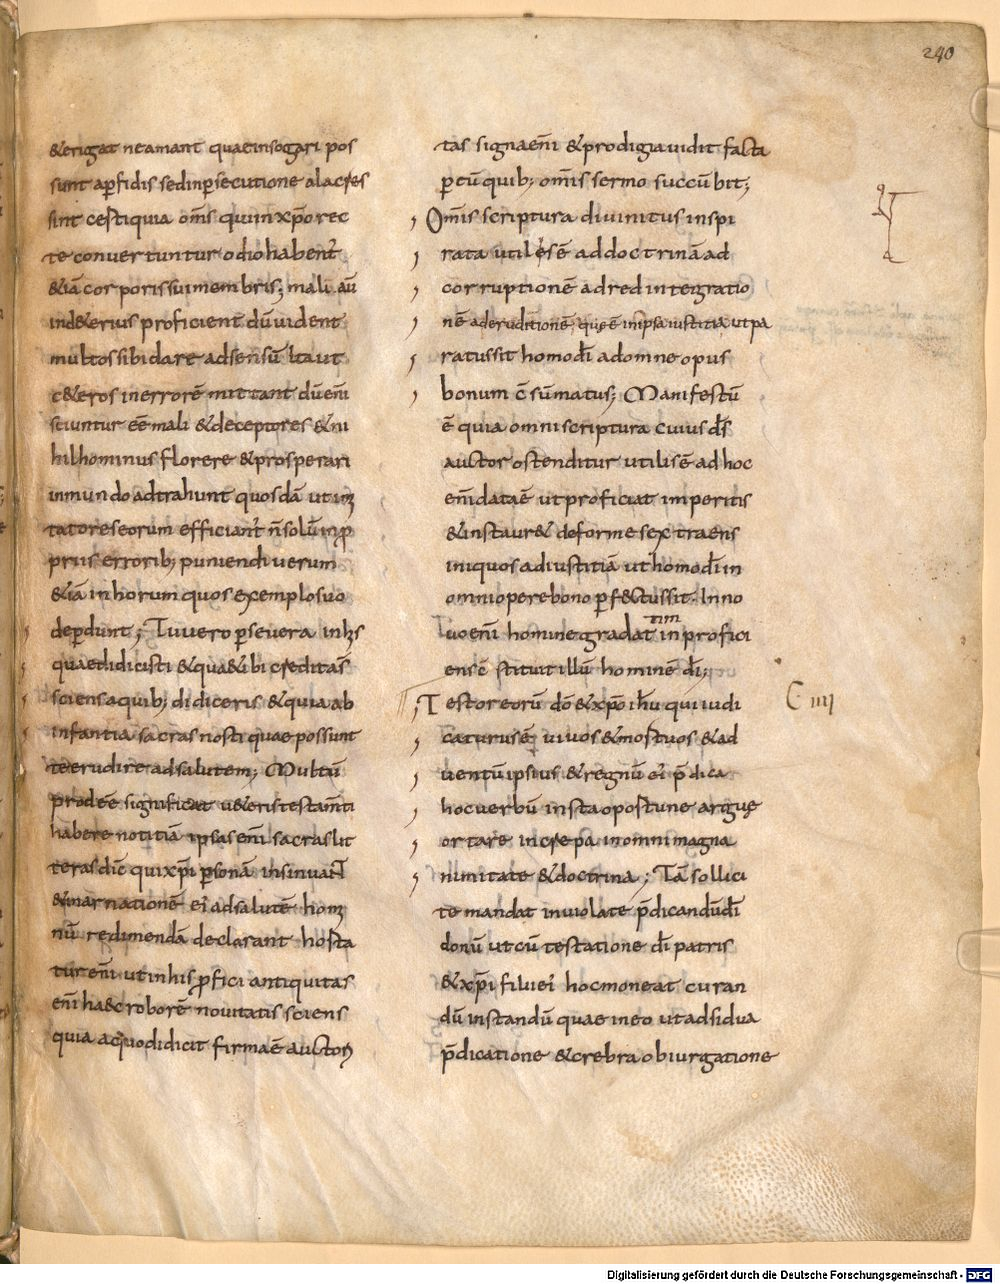 240
&erigat neamant quaeinsogari pos
sunt apfidis sedinpsecutione alacres
sint certiquia om̄s quiinxp̄o rec
te convertuntur odiohabent
&iā corporissuimembris; mali aū
ind&erius proficient dū vident
multossibidare adsensū Ita ut
c&eros inerrorē mittant dūeni̅
sciuntur ēē mali &deceptores &ni
hilhominus florere &prosperari
inmundo adtrahunt quosdā ut imi
tatoreseorum efficiant n̄ solū inp
priis errorib; puniendi verum
&iā inhorum quos exemplosuo
depdunt; Tuvero psevera inhis
quaedidicisti &quaetibi creditas̄
sciensaquib; didiceris &quia ab
infantia sacras nosti quae possunt
teerudire adsalutem; Multū
prodeē significat v&eristestam̄ti
habere notitiā ipsas eni̅ sacras lit
teras dic̄ quixp̄i psonā insinuant
&incarnationē ei' adsalutē homi
nū redimendā declarant horta
tur eni̅ ut inhis pfici antiquitas
eni̅ haec roborē novitatis sciens
quia aquodidicit firmaē auctori
tas signaeni̅ &prodigiavidit facta
p eū quib; om̄is sermo succūbit;
Om̄is scriptura divinitus inspi
rata utilisē addoctrinā ad
corruptionē adredintegratio
nē aderuditionē quaeē inipsa iustitia ut pa
ratussit homodī adomne opus
bonum c̄sūmatus; Manifestū
ē quia omniscriptura cuius d̄s
auctor ostenditur utilisē adhoc
eni̅ dataē utproficiat imperitis
&instaur& deformes extraens
iniquos adiustitiā ut homodī in
omnioperebono pfectussit. Inno
vo eni̅ homine gradatim inprofici
ens c̄stituit illū hominē dī;
Testoreorū dō &xp̄o ihū qui iudi
caturusē vivos &mortuos &ad
ventū ipsius &regnū ei' p̄dica
hocverbū insta oportune argue
ortare increpa inomni magna
nimitate &doctrina; Tā sollici
te mandat inviolate p̄dicandū dī
donū utcū testatione dī patris
&xp̄i filiiei' hocmoneat curan
dū instandū quae ineo ut adsidua
p̄dicatione &crebra obiurgatione
C IIII
Digitalisierung gefördert durch die Deutsche Forschungsgemeinschaft - DFG